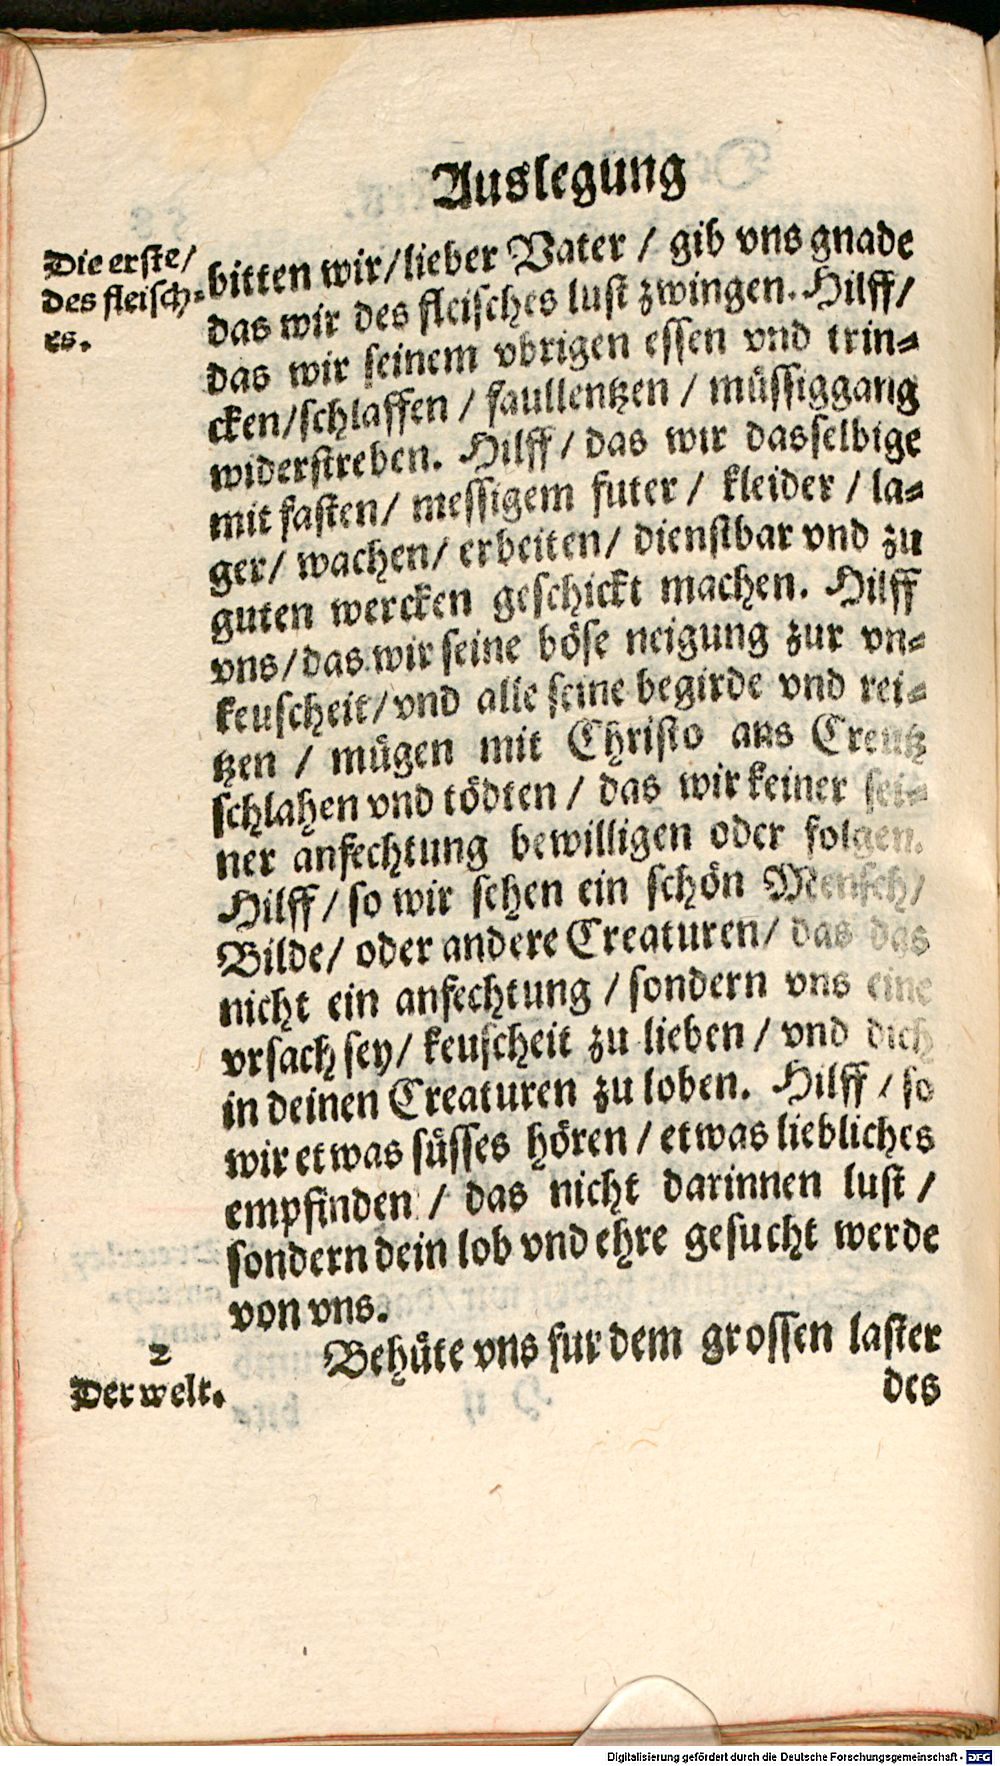 Auslegung
Die erste/
des fleisch-
es.
bitten wir/lieber Vater / gib vns gnade
das wir des fleisches lust zwingen. Hilff/
das wir seinem vbrigen essen vnd trin-
cken/schlaffen / faullentzen / müssiggang
widerstreben. Hilff/ das wir dasselbige
mit fasten/ messigem futer / kleider / la-
ger/ wachen/ erbeiten/ dienstbar vnd zu
guten wercken geschickt machen. Hilff
vns/das wir seine böse neigung zur vn-
keuscheit/vnd alle seine begirde vnd rei-
tzen / mügen mit Christo ans Creutz
schlahen vnd tödten / das wir keiner sei-
ner anfechtung bewilligen oder folgen.
Hilff / so wir sehen ein schön Mensch/
Bilde/ oder andere Creaturen/ das das
nicht ein anfechtung / sondern vns eine
vrsach sey/ keuscheit zu lieben / vnd dich
in deinen Creaturen zu loben. Hilff / so
wir etwas süsses hören / etwas liebliches
empfinden / das nicht darinnen lust /
sondern dein lob vnd ehre gesucht werde
von vns.
2
Der welt.
Behüte vns fur dem grossen laster
des
Digitalisierung gefördert durch die Deutsche Forschungsgemeinschaft - DFG